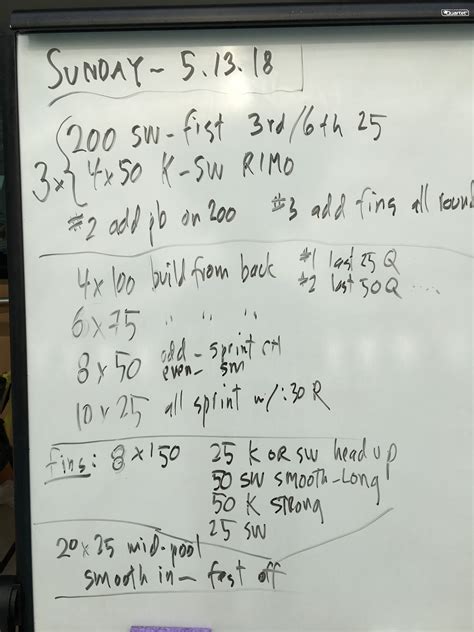 Quartet
SUNDAY - 5.13.18
3x { 200 SW - fist 3rd/6th 25
4x50 K-SW RIMO
#2 add pb on 200 #3 add fins all round
4x100 build from back #1 last 25 Q
#2 last 50 Q ....
6x75 " " "
8x50 odd - sprint
even - sm
10x25 all sprint w/:30 R
fins: 8x150 25 K OR SW head up
50 SW smooth-Long
50 K strong
25 SW
20x25 mid-pool
smooth in - fast off